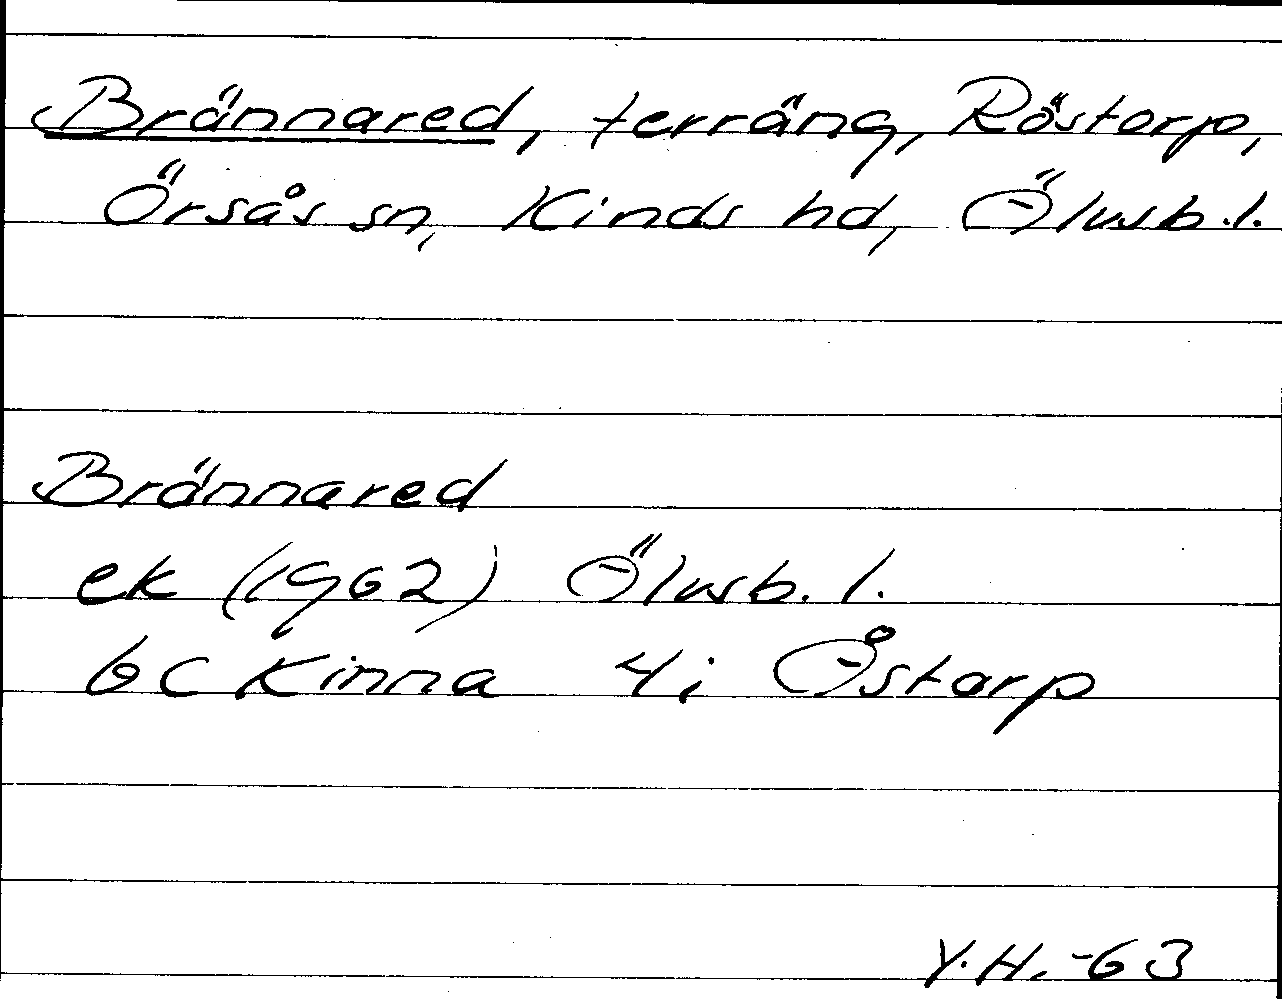 Brännared, terräng, Röstorp,
Örsås sn, Kinds hd, Älvsb. l.
Brännared
ek (1962) Älvsb. l.
6C Kinna 4i Åstarp
Y.H. -63